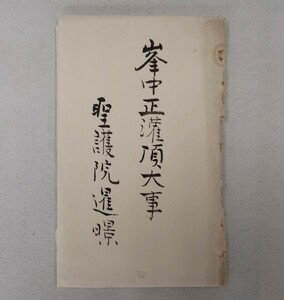 峯中正灌頂大事
聖護院暹暻